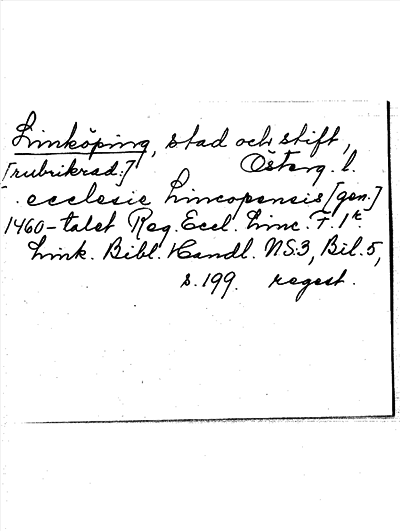 Linköping, stad och stift,
[rubrikrad.] Österg. l.
ecclesie Lincopensis [gen.]
1460-talet Reg. Eccl. Linc. F. 1 r.
Link. Bibl. Handl. NS:3, Bil. 5,
s. 199. regest.